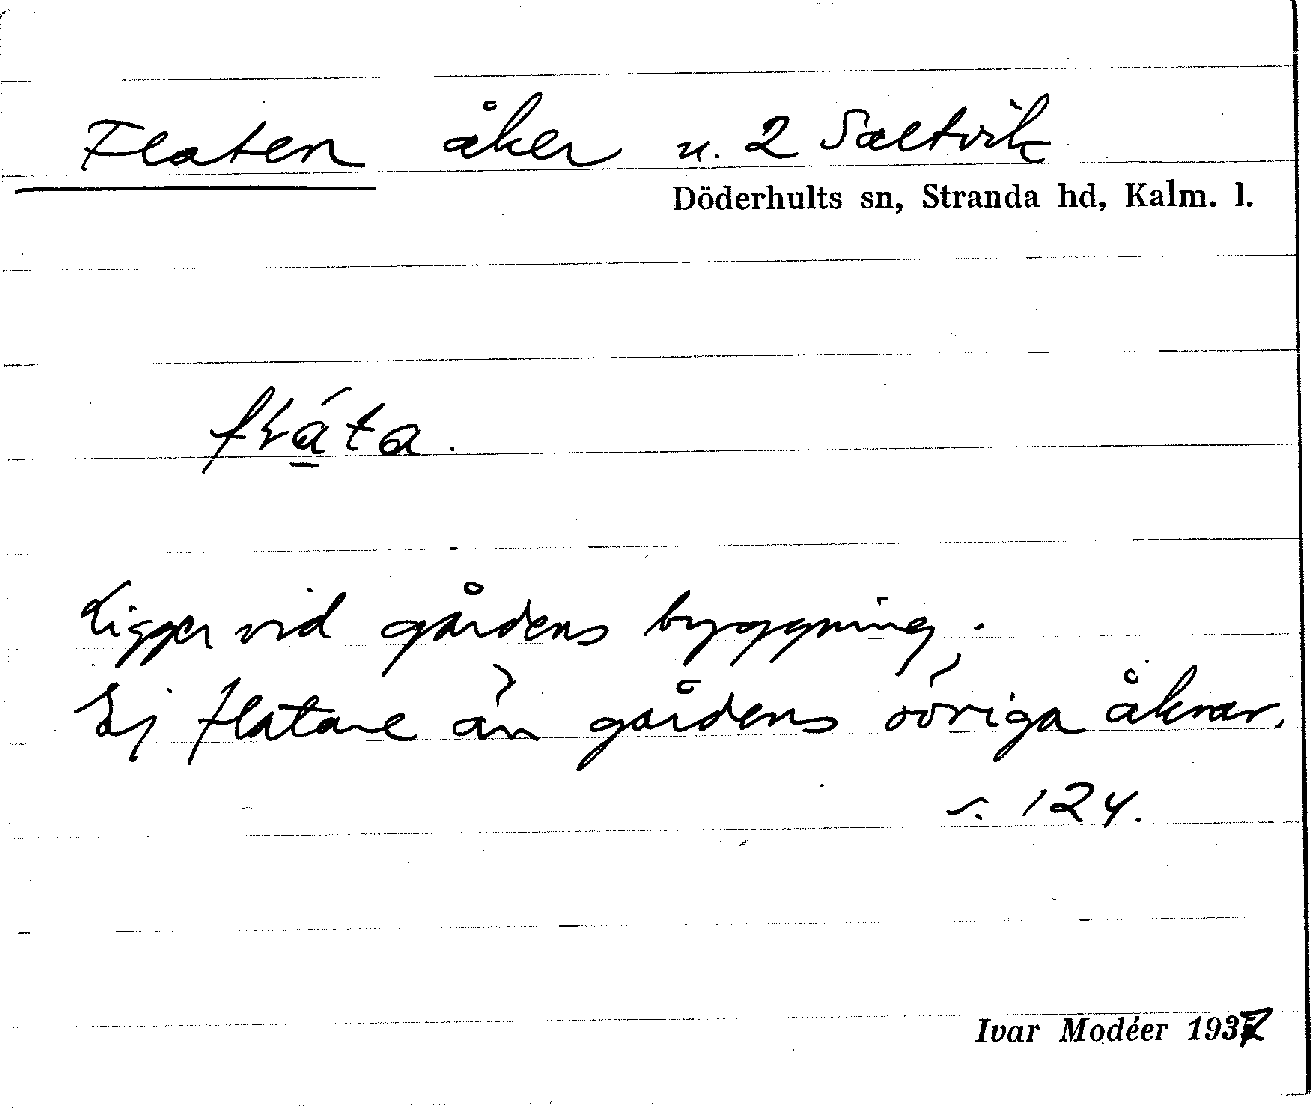 Flaten åker u. 2 Saltvik
Döderhults sn, Stranda hd, Kalm. l.
Ligger vid gårdens byggning.
Ej flatare än gårdens övriga åkrar.
s. 124.
Ivar Modéer 1937